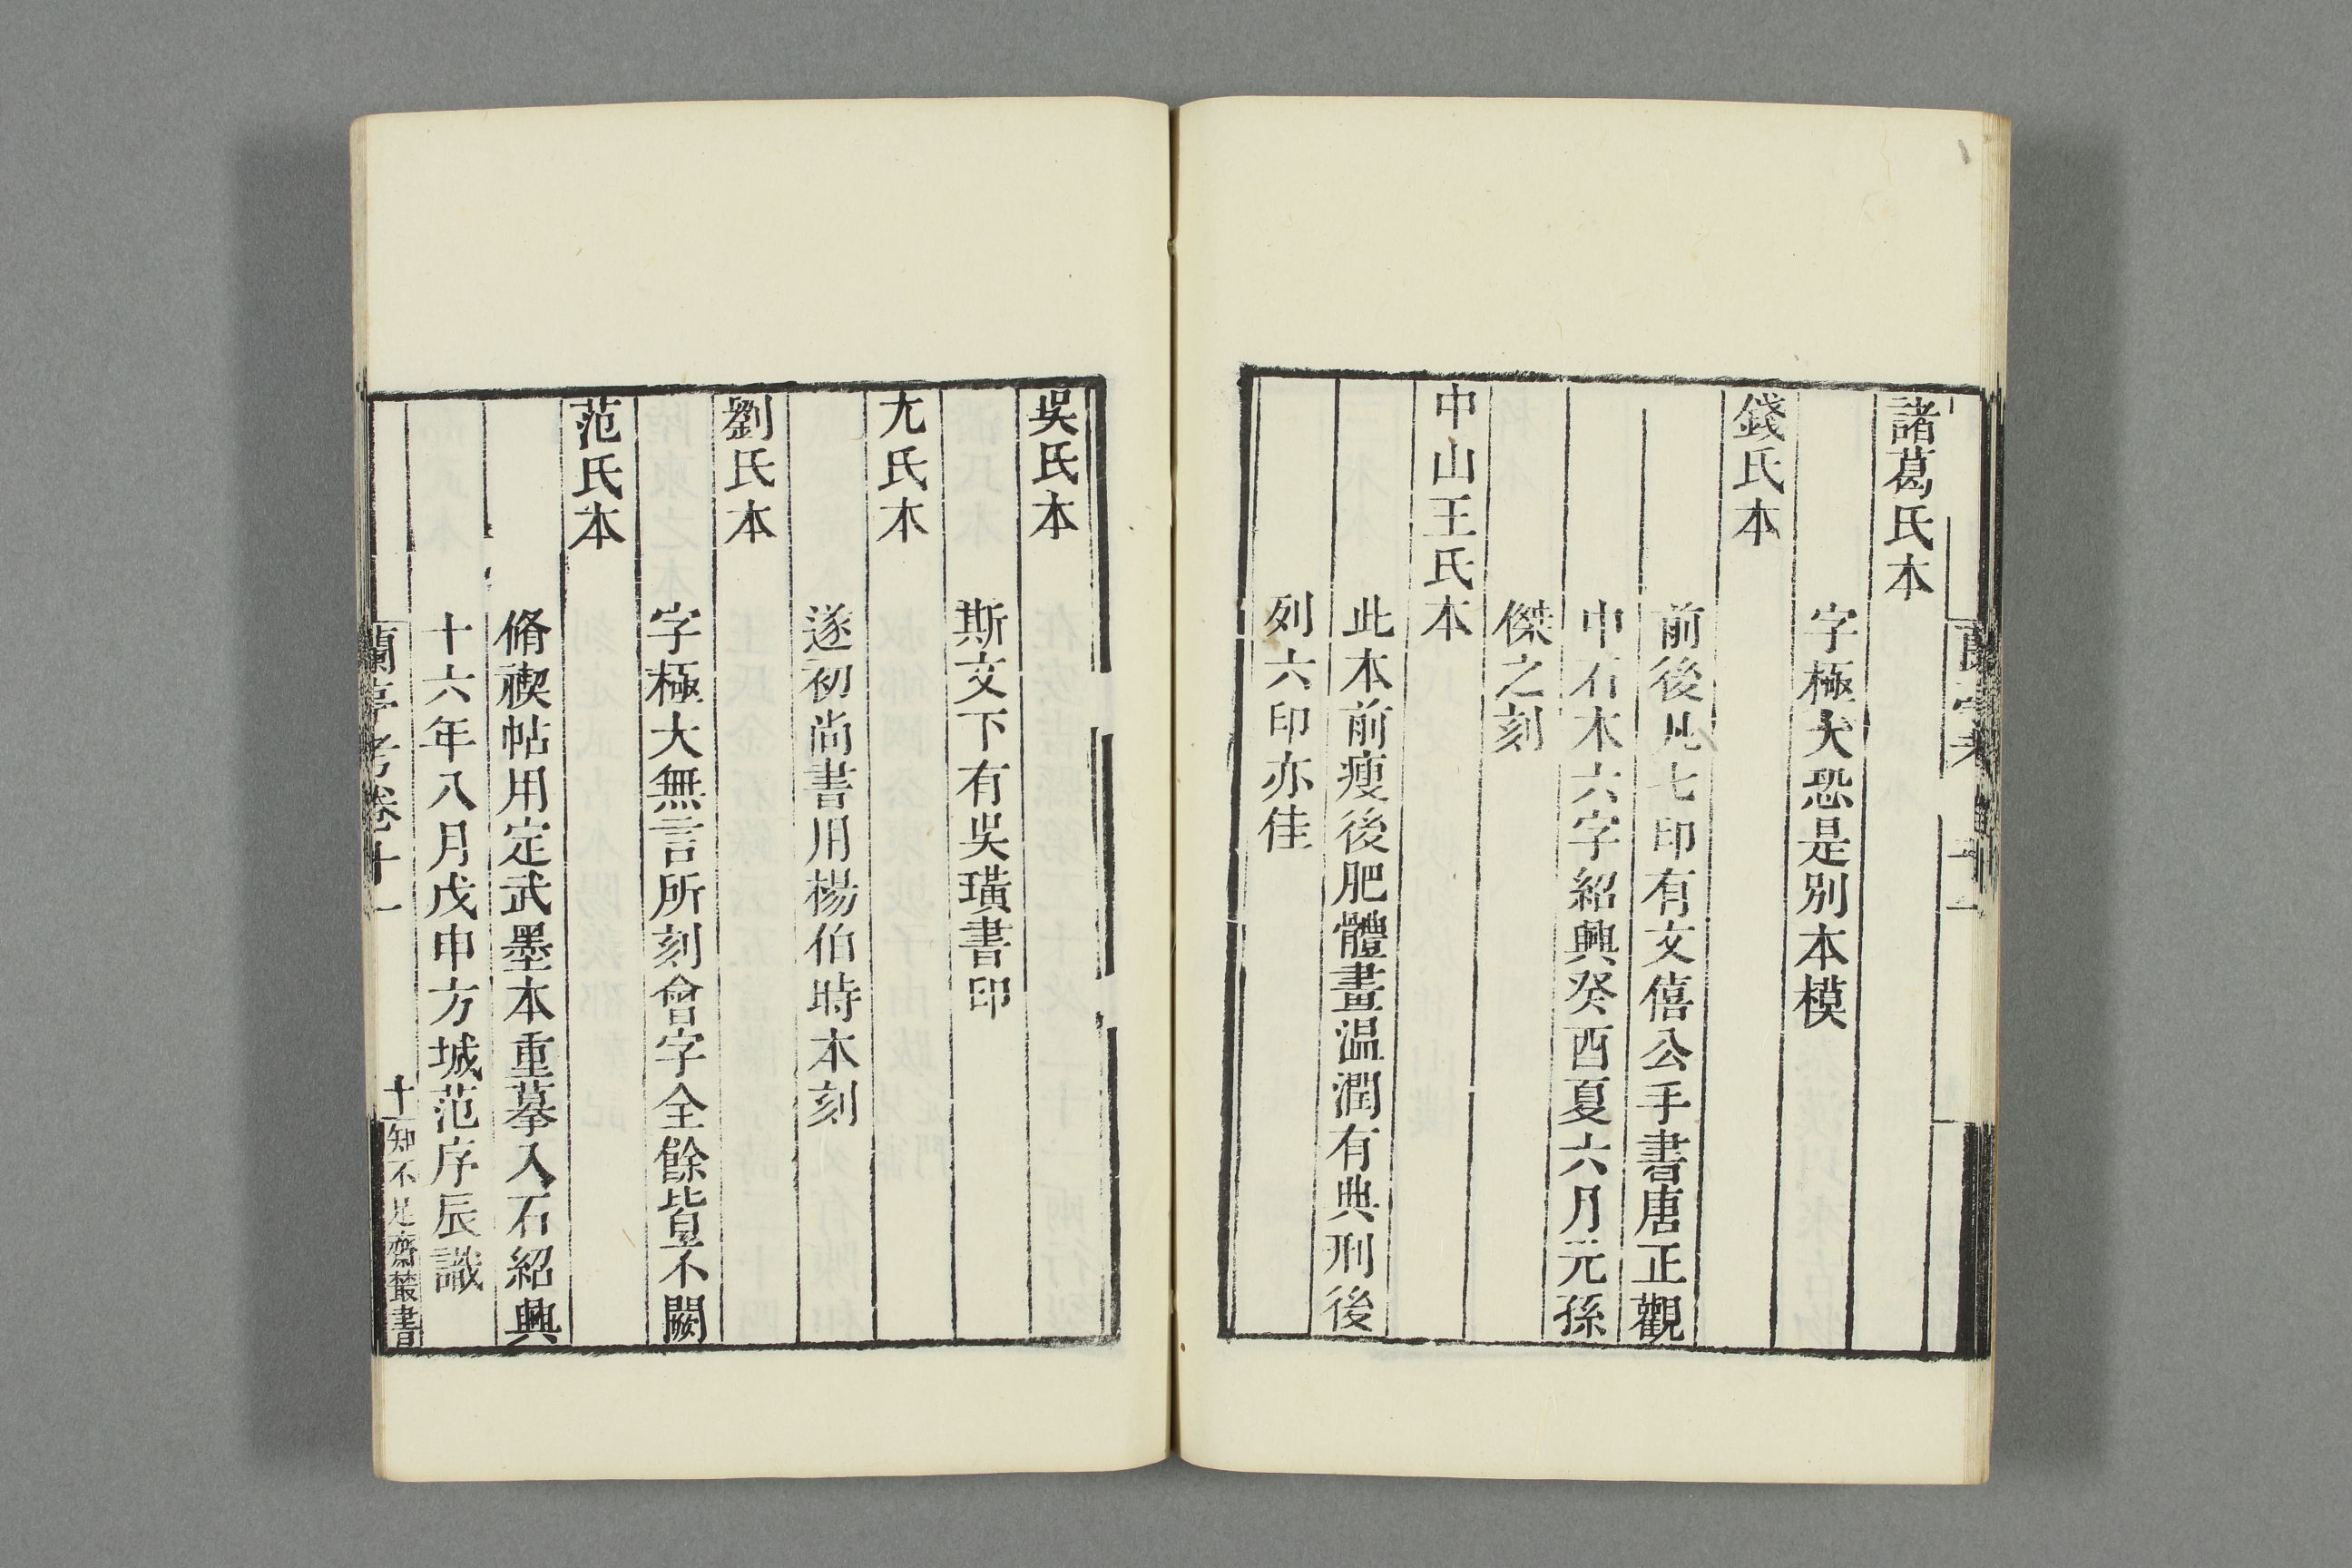 諸葛氏本
字極大恐是別本模
錢氏本
前後凡七印有文僖公手書唐正觀
中石本六字紹興癸酉夏六月元孫
傑之刻
中山王氏本
此本前瘦後肥體畫温潤有典刑後
列六印亦佳
吳氏本
斯文下有吳璜書印
尤氏本
遂初尚書用楊伯時本刻
劉氏本
字極大無言所刻會字全餘皆不闕
范氏本
脩禊帖用定武墨本重摹入石紹興
十六年八月戊申方城范序辰識
蘭亭考卷十一
十
知不足齋叢書